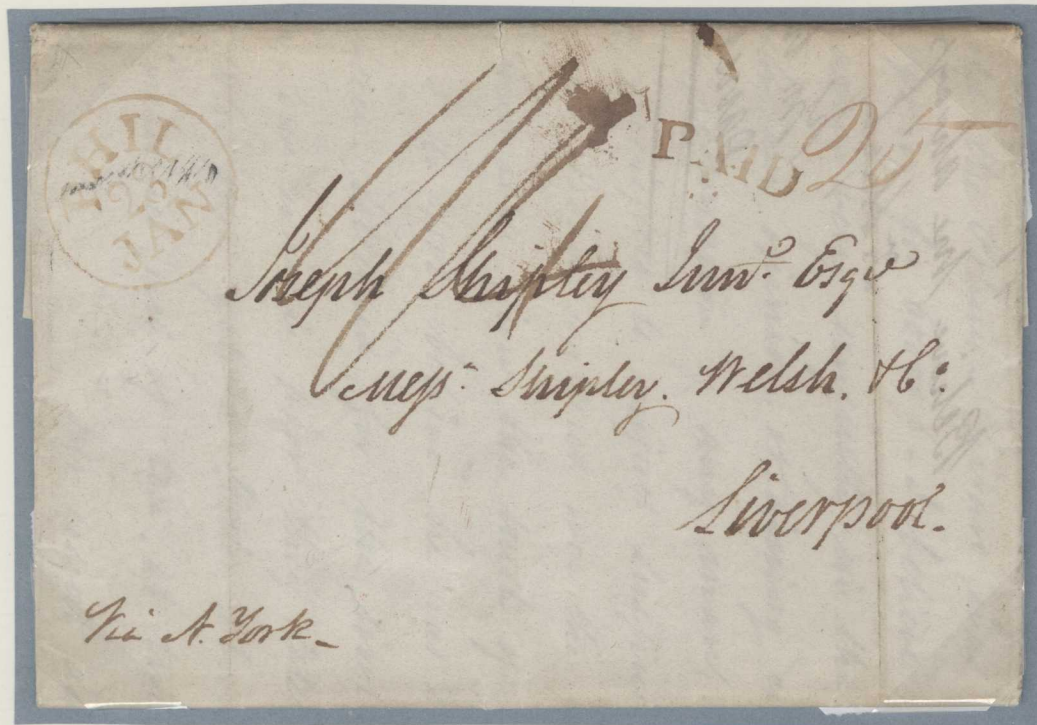 PHIL
23
JAN
PAID 25
Joseph Shipley Junr. Esqr
Messrs. Shipley. Welsh. & Co.
Liverpool.
Via N. York_